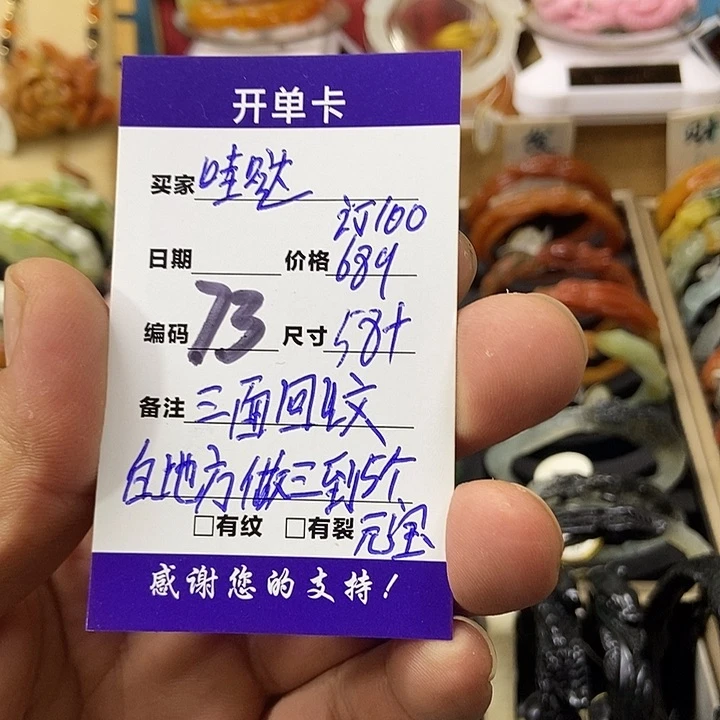 开单卡
买家 哇哒
订100
日期 价格 689
编码 73 尺寸 58+
备注 三面回纹
白地方做三到5个
□有纹 □有裂 元宝
感谢您的支持！